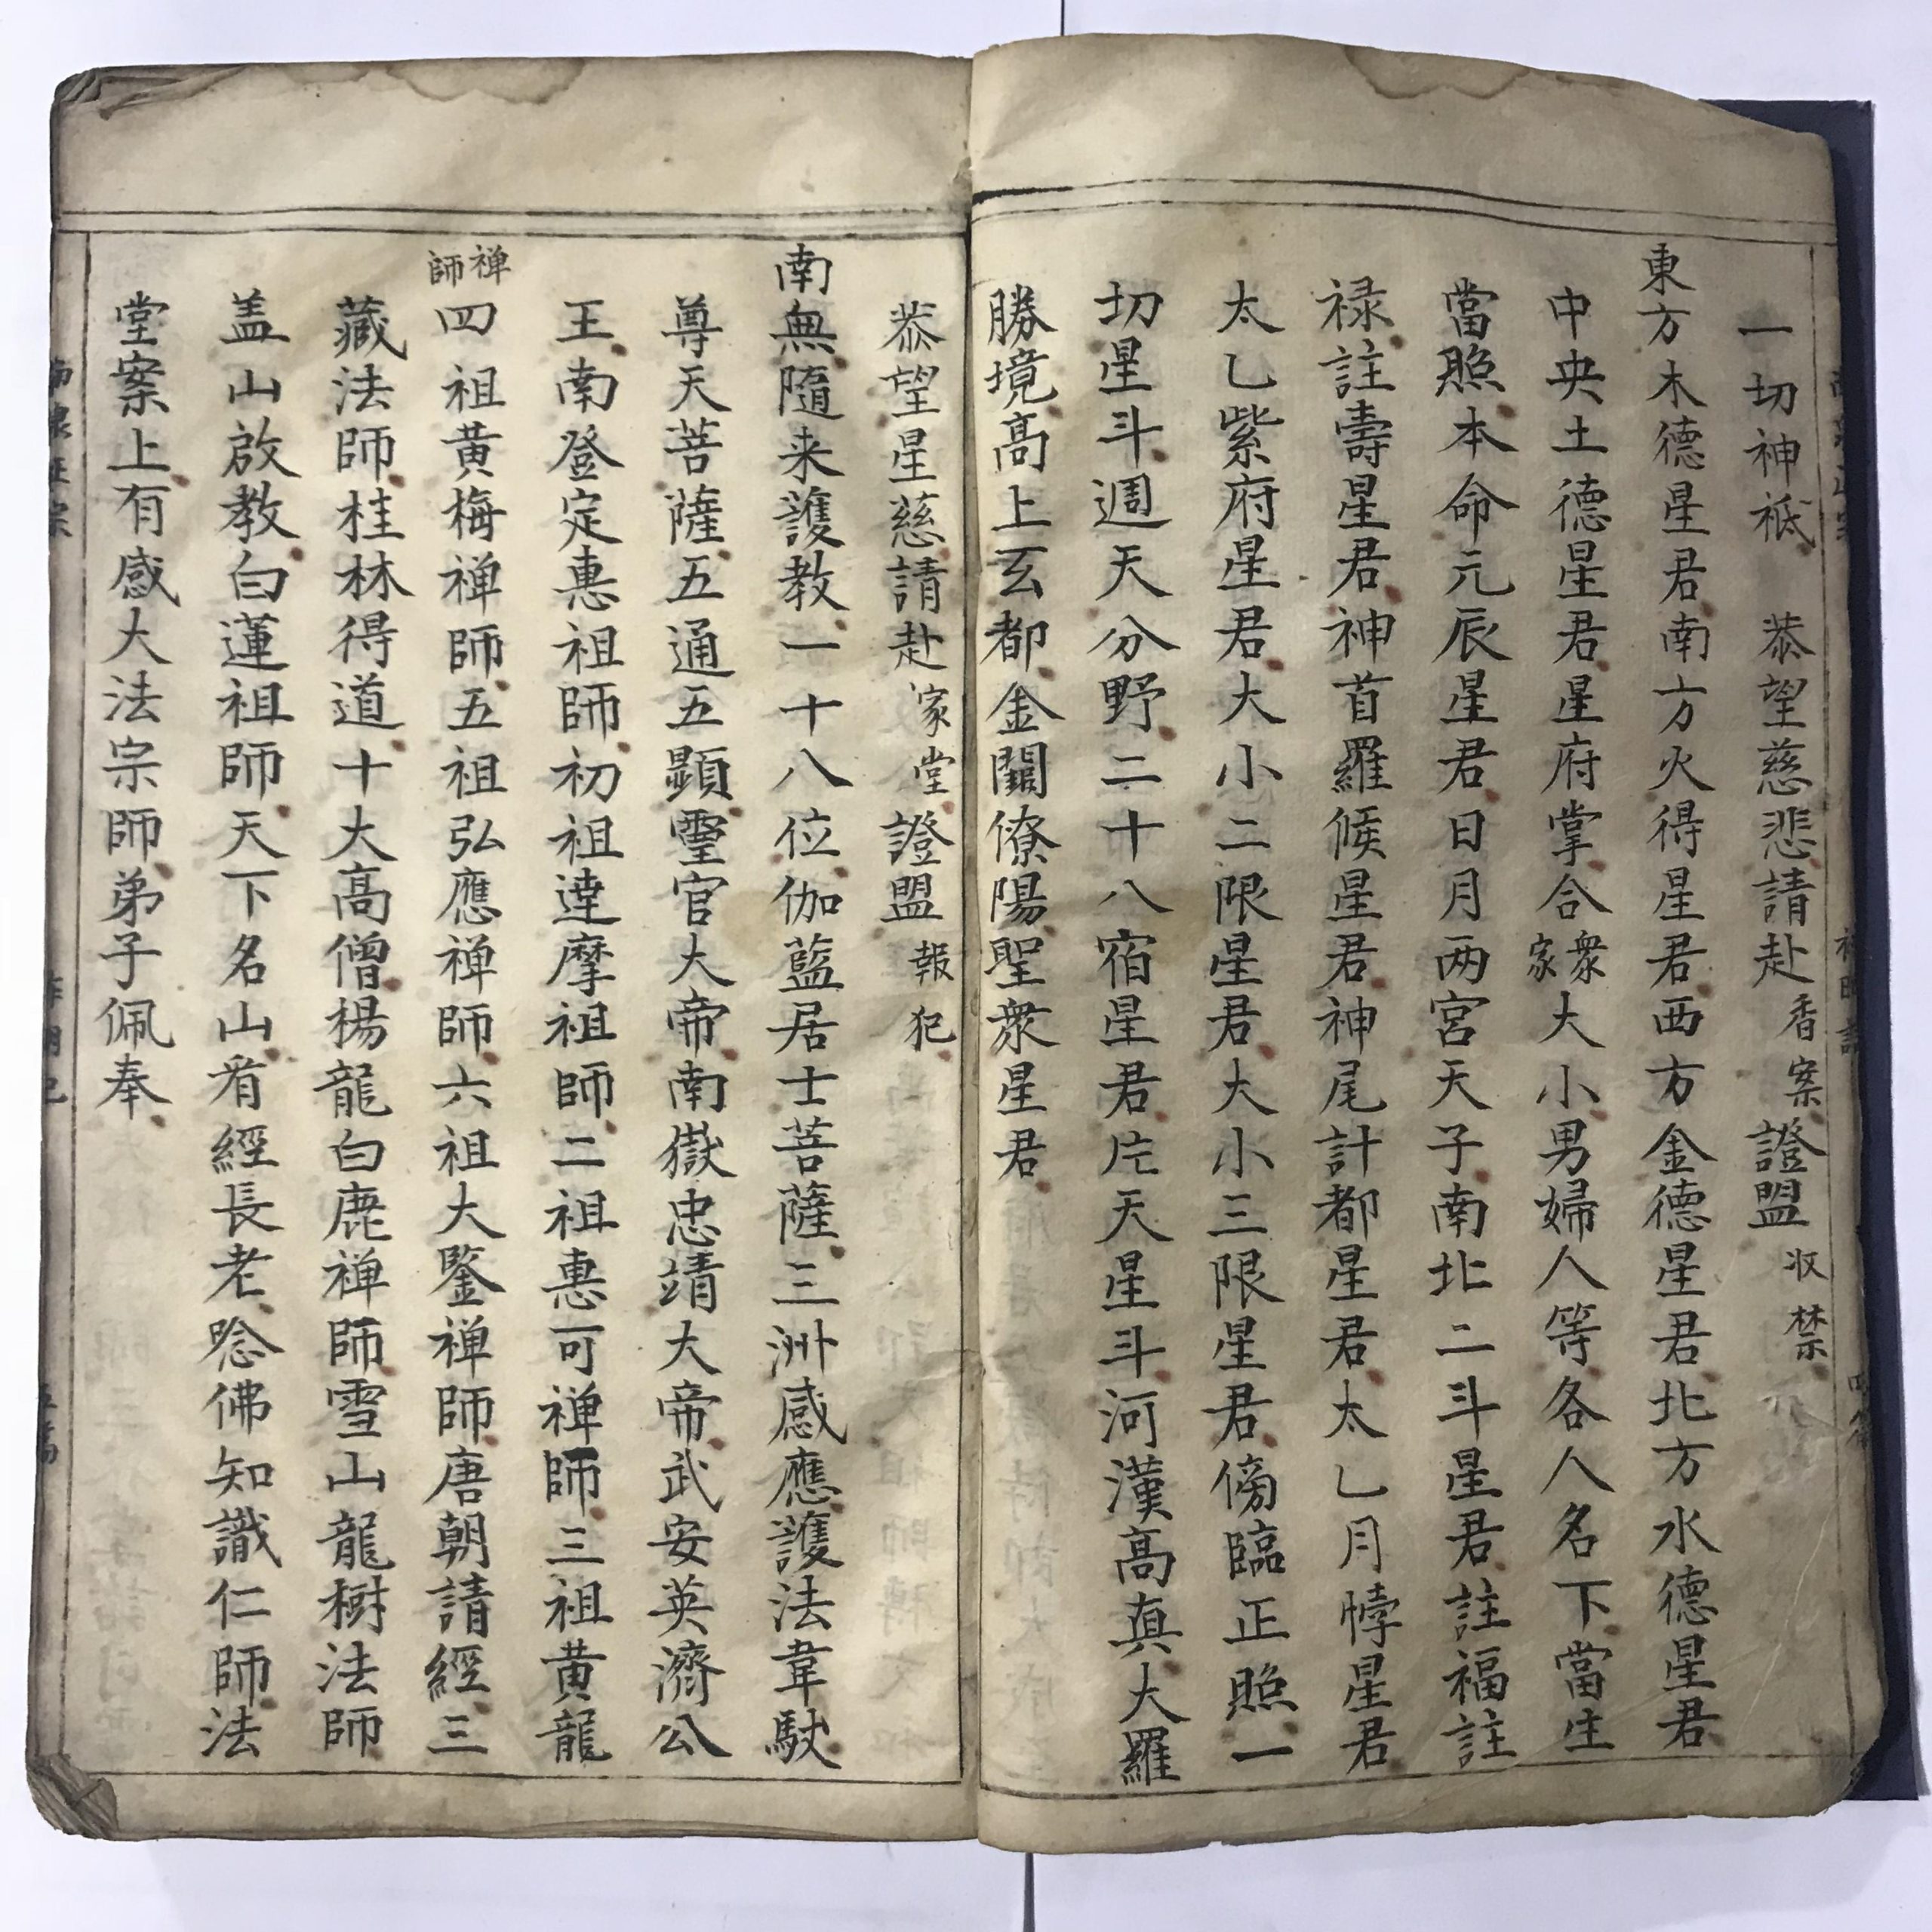 一切神祗 恭望慈悲請赴香案證盟收禁
東方木德星君南方火得星君西方金德星君北方水德星君
中央土德星君星府掌合衆家大小男婦人等各人名下當生
當照本命元辰星君日月两宮天子南北二斗星君註福註
禄註壽星君神首羅候星君神尾計都星君太乙月悖星君
太乙紫府星君大小二限星君大小三限星君傍臨正照一
切星斗週天分野二十八宿星君片天星斗河漢高真大羅
勝境高上玄都金闕僚陽聖衆星君
恭望星慈請赴家堂證盟報犯
南無隨来護教一十八位伽藍居士菩薩三洲感應護法韋馱
尊天菩薩五通五顯霊官大帝南嶽忠靖大帝武安英濟公
王南登定惠祖師初祖達摩祖師二祖惠可禅師三祖黄龍
禅師四祖黄梅禅師五祖弘應禅師六祖大鑒禅師唐朝請經三
藏法師桂林得道十大高僧楊龍白鹿禅師雪山龍樹法師
盖山啟教白蓮祖師天下名山有經長老唸佛知識仁師法
堂案上有感大法宗師弟子佩奉